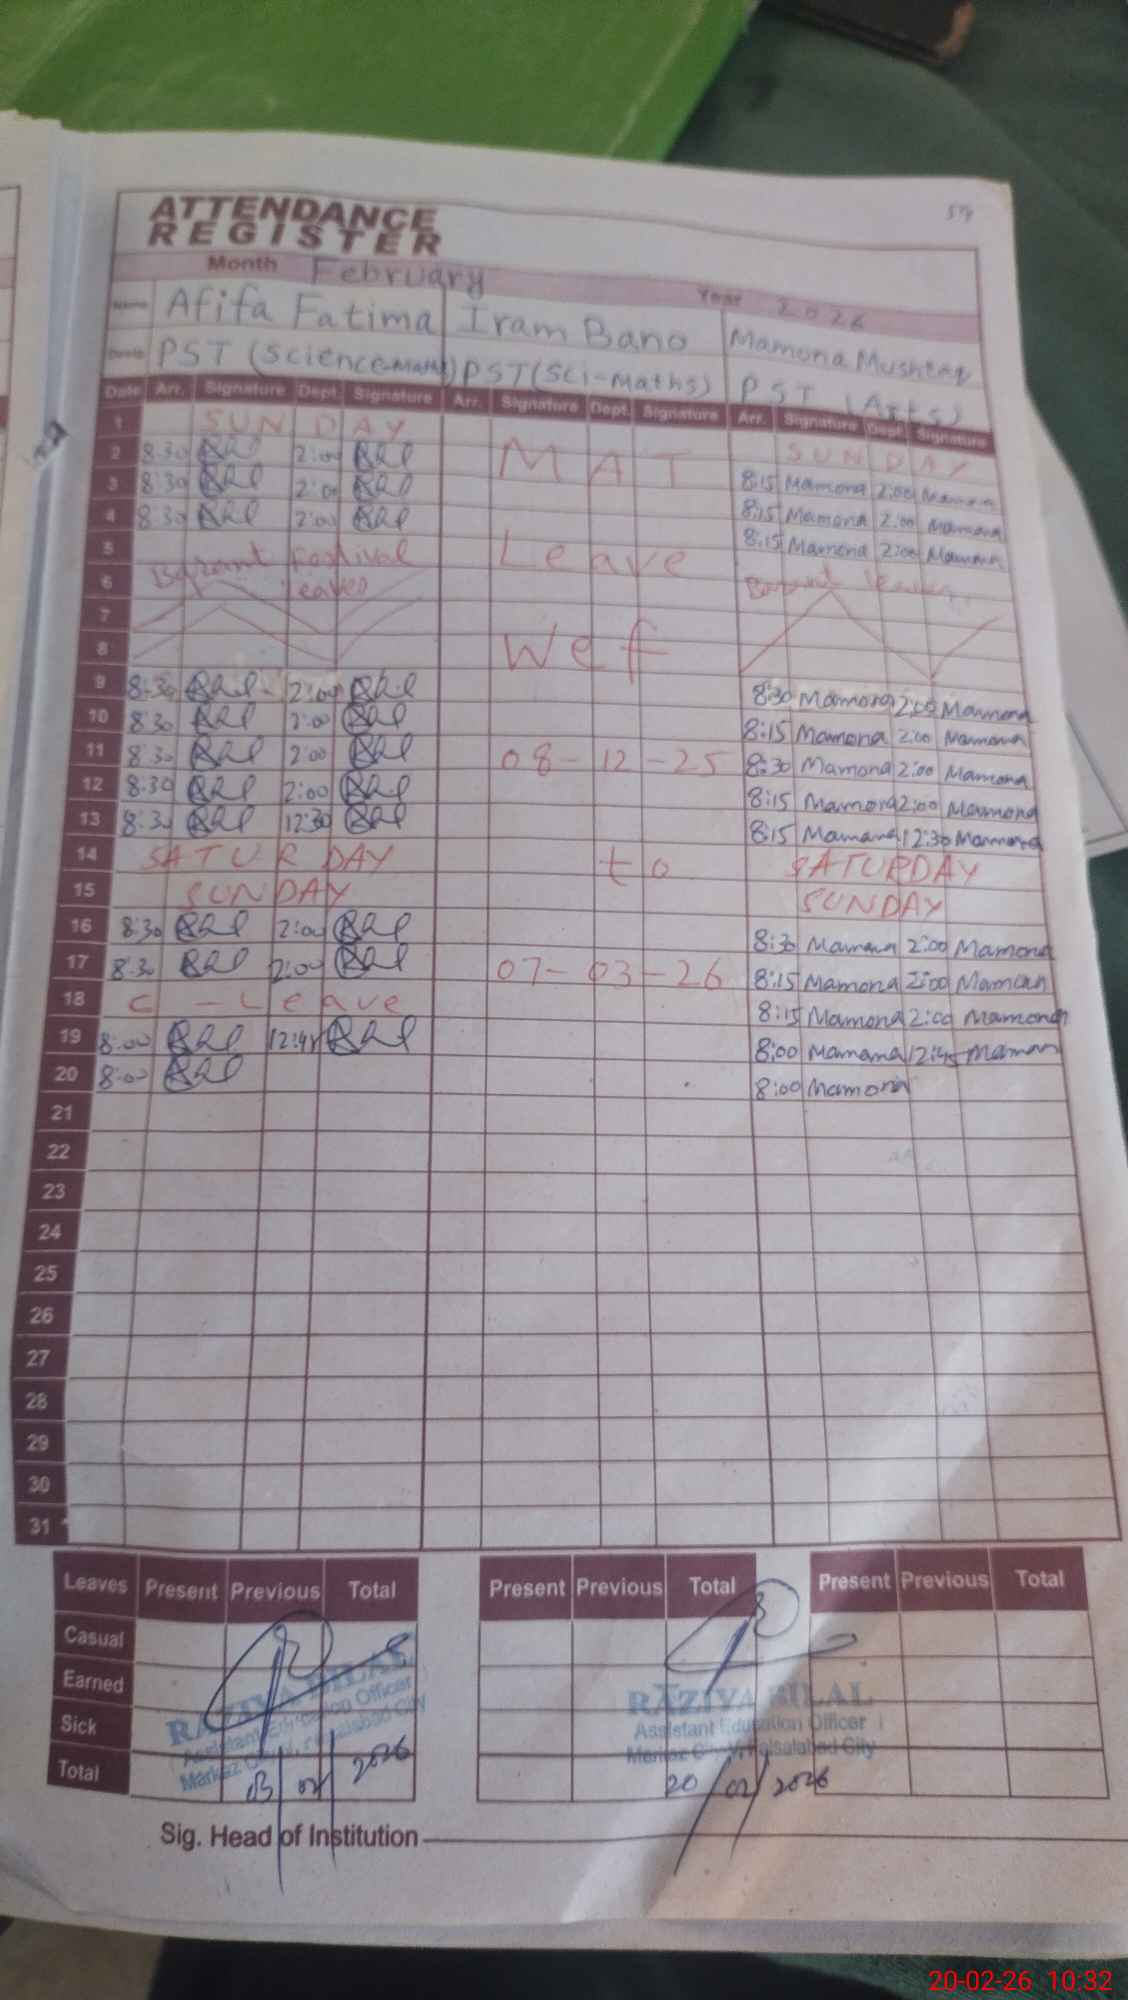 574
ATTENDANCE
REGISTER
Month February Year 2026
Name Afifa Fatima Iram Bano Mamona Mushtaq
PST (Science-Maths) PST (Sci-Maths) PST (Arts)
Date Arr. Signature Dept. Signature Arr. Signature Dept. Signature Arr. Signature Dept. Signature
1 SUNDAY SUNDAY
2 8:30 2:00 MAT 8:15 Mamona 2:00 Mamona
3 8:30 2:00 8:15 Mamona 2:00 Mamona
4 8:30 2:00 8:15 Mamona 2:00 Mamona
5 Festival Leave
6 leaves
7
8 Wef
9 8:30 2:00 8:30 Mamona 2:00 Mamona
10 8:30 2:00 8:15 Mamona 2:00 Mamona
11 8:30 2:00 08-12-25 8:30 Mamona 2:00 Mamona
12 8:30 2:00 8:15 Mamona 2:00 Mamona
13 8:30 12:30 8:15 Mamona 12:30 Mamona
14 SATURDAY to SATURDAY
15 SUNDAY SUNDAY
16 8:30 2:00 8:30 Mamona 2:00 Mamona
17 8:30 2:00 07-03-26 8:15 Mamona 2:00 Mamona
18 C-Leave 8:15 Mamona 2:00 Mamona
19 8:00 12:45 8:00 Mamona 12:45 Mamona
20 8:00 8:00 Mamona
21
22
23
24
25
26
27
28
29
30
31
Leaves Present Previous Total Present Previous Total Present Previous Total
Casual
Earned
Sick
Total
RAZIYA BILAL
Assistant Education Officer
Markaz City V, Faisalabad City
03/02/2026
RAZIYA BILAL
Assistant Education Officer
Markaz City V, Faisalabad City
20/02/2026
Sig. Head of Institution
20-02-26 10:32